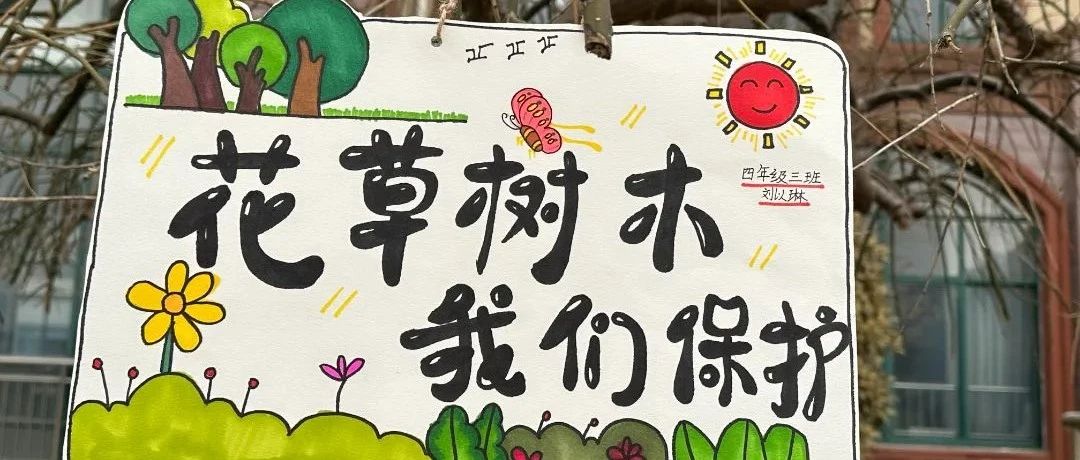 四年级三班
刘以琳
花草树木
我们保护